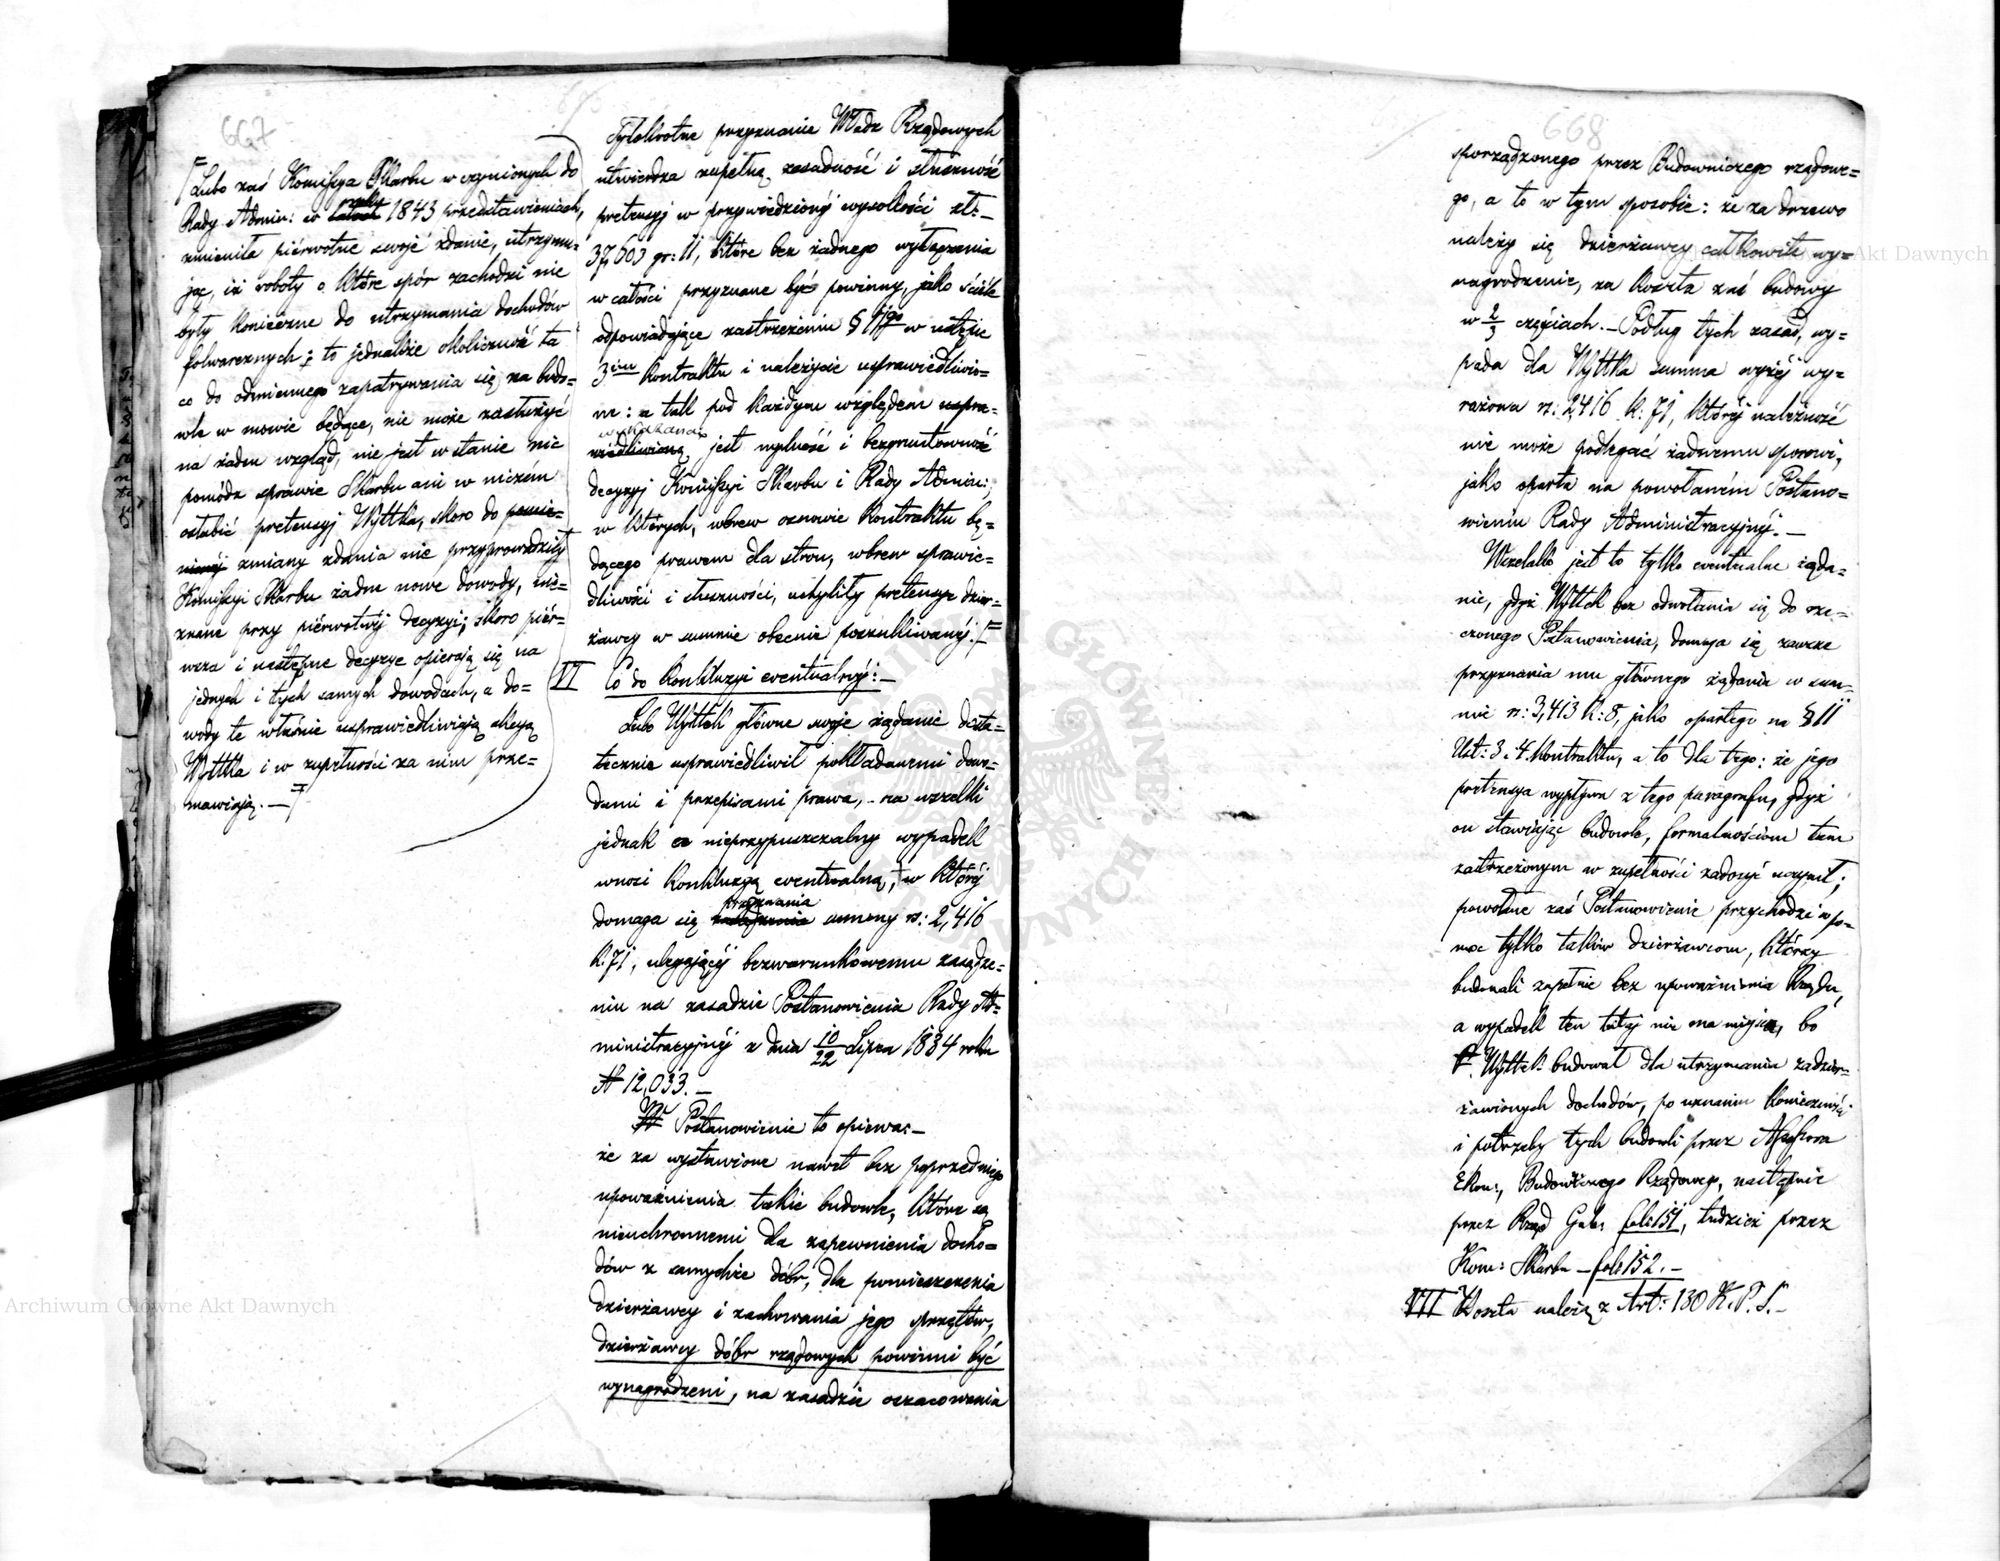 667
Lubo zaś Komissya Skarbu w czynionych do
Rady Admin: w roku 1843 przedstawieniach,
zmieniła piérwotne swoje zdanie, utrzymu=
jąc, iż roboty o które spór zachodzi nie
były konieczne do utrzymania dochodów
folwarcznych; to jednakże okoliczność ta
co do odmiennego zapatrywania się na budo=
wle w mowie będące, nie może zasłużyć
na żaden wzgląd, nie jest w stanie nic
pomódz sprawie Skarbu ani w niczém
osłabić pretensyj Wyttka, skoro do
zmiany zdania nie przyprowadziły
Komissyi Skarbu żadne nowe dowody, nie=
znane przy piérwotnéj decyzyi; skoro piér=
wsza i następne decyzye opierają się na
jednych i tych samych dowodach, a do=
wody te właśnie usprawiedliwiają akcyą
Wyttka i w zupełności za nim prze=
mawiają. —
Tylokrotne przyznanie Władz Rządowych
utwierdza zupełną zasadność i słuszność
pretensyj w przywiedzionéj wysokości zł: —
37,603 gr: 11, które bez żadnego wyłączenia
w całości przyznane być powinny, jako ściśle
odpowiadające zastrzeżeniu § 11go w ustępie
3cim kontraktu i należycie usprawiedliwio=
ne: a tak pod każdym względem uspra=
wykazaną
wiedliwioną jest mylność i bezgruntowność
decyzyj Komissyi Skarbu i Rady Admin:,
w których, wbrew osnowie kontraktu bę=
dącego prawem dla stron, wbrew sprawie=
dliwości i słuszności, uchyliły pretensye dzier=
żawcy w summie obecnie poszukiwanéj. —
VI Co do konkluzyi eventualnéj: —
Lubo Wyttek główne swoje żądanie dosta=
tecznie usprawiedliwił pokładanemi dowo=
dami i przepisami prawa, — na wszelki
jednak nieprzypuszczalny wypadek
wnosi konkluzyą eventualną, w któréj
przyznania
domaga się summy rs: 2,416
k: 71, ulegającéj bezwarunkowemu zasądze=
niu na zasadzie Postanowienia Rady Ad=
ministracyjnéj z dnia 10/22 Lipca 1834 roku
N 12,033. —
Postanowienie to opiewa: —
że za wystawione nawet bez poprzedniego
upoważnienia takie budowle, które są
nieuchronnemi dla zapewnienia docho=
dów z samychże dóbr, dla pomieszczenia
dzierżawcy i zachowania jego sprzętów,
dzierżawcy dóbr rządowych powinni być
wynagrodzeni, na zasadzie oszacowania
668
sporządzonego przez Budowniczego rządowe=
go, a to w tym sposobie: że za drzewo
należy się dzierżawcy całkowite wy=
nagrodzenie, za koszta zaś budowy
w 2/3 częściach. — Podług tych zasad, wy=
pada dla Wyttka summa wyżéj wy=
rażona rs: 2,416 k: 71, któréj należność
nie może podlegać żadnemu sporowi,
jako oparta na powołaném Postano=
wieniu Rady Administracyjnéj. —
Wszelako jest to tylko eventualne żąda=
nie, gdyż Wyttek bez odwołania się do rze=
czonego Postanowienia, domaga się zawsze
przyznania mu głównego żądania w sum=
mie rs: 3,413 k: 8, jako opartego na § 11
Ust: 3 i 4 kontraktu, a to dla tego: że jego
pretensya wypływa z tego paragrafu, gdyż
on stawiając budowle, formalnościom tam
zastrzeżonym w zupełności zadosyć uczynił;
powołane zaś Postanowienie przychodzi w po=
moc tylko takim dzierżawcom, którzy
budowali zupełnie bez upoważnienia Rządu,
a wypadek ten tutaj nie ma miejsca, bo
P. Wyttek budował dla utrzymania zadzier=
żawionych dochodów, po uznaniu konieczności
i potrzeby tych budowli przez Assessora
Ekon:, Budowniczego Rządowego, następnie
przez Rząd Gub: fol: 151, tudzież przez
Kom: Skarbu — fol: 152. —
VII Koszta należą z Art: 130 K. P. S. —
Archiwum Główne Akt Dawnych